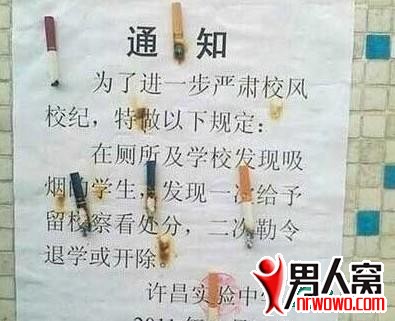 通知
为了进一步严肃校风
校纪，特做以下规定：
在厕所及学校发现吸
烟的学生，发现一次给予
留校察看处分，二次勒令
退学或开除。
许昌实验中学
2011年
男人窝
nrwowo.com